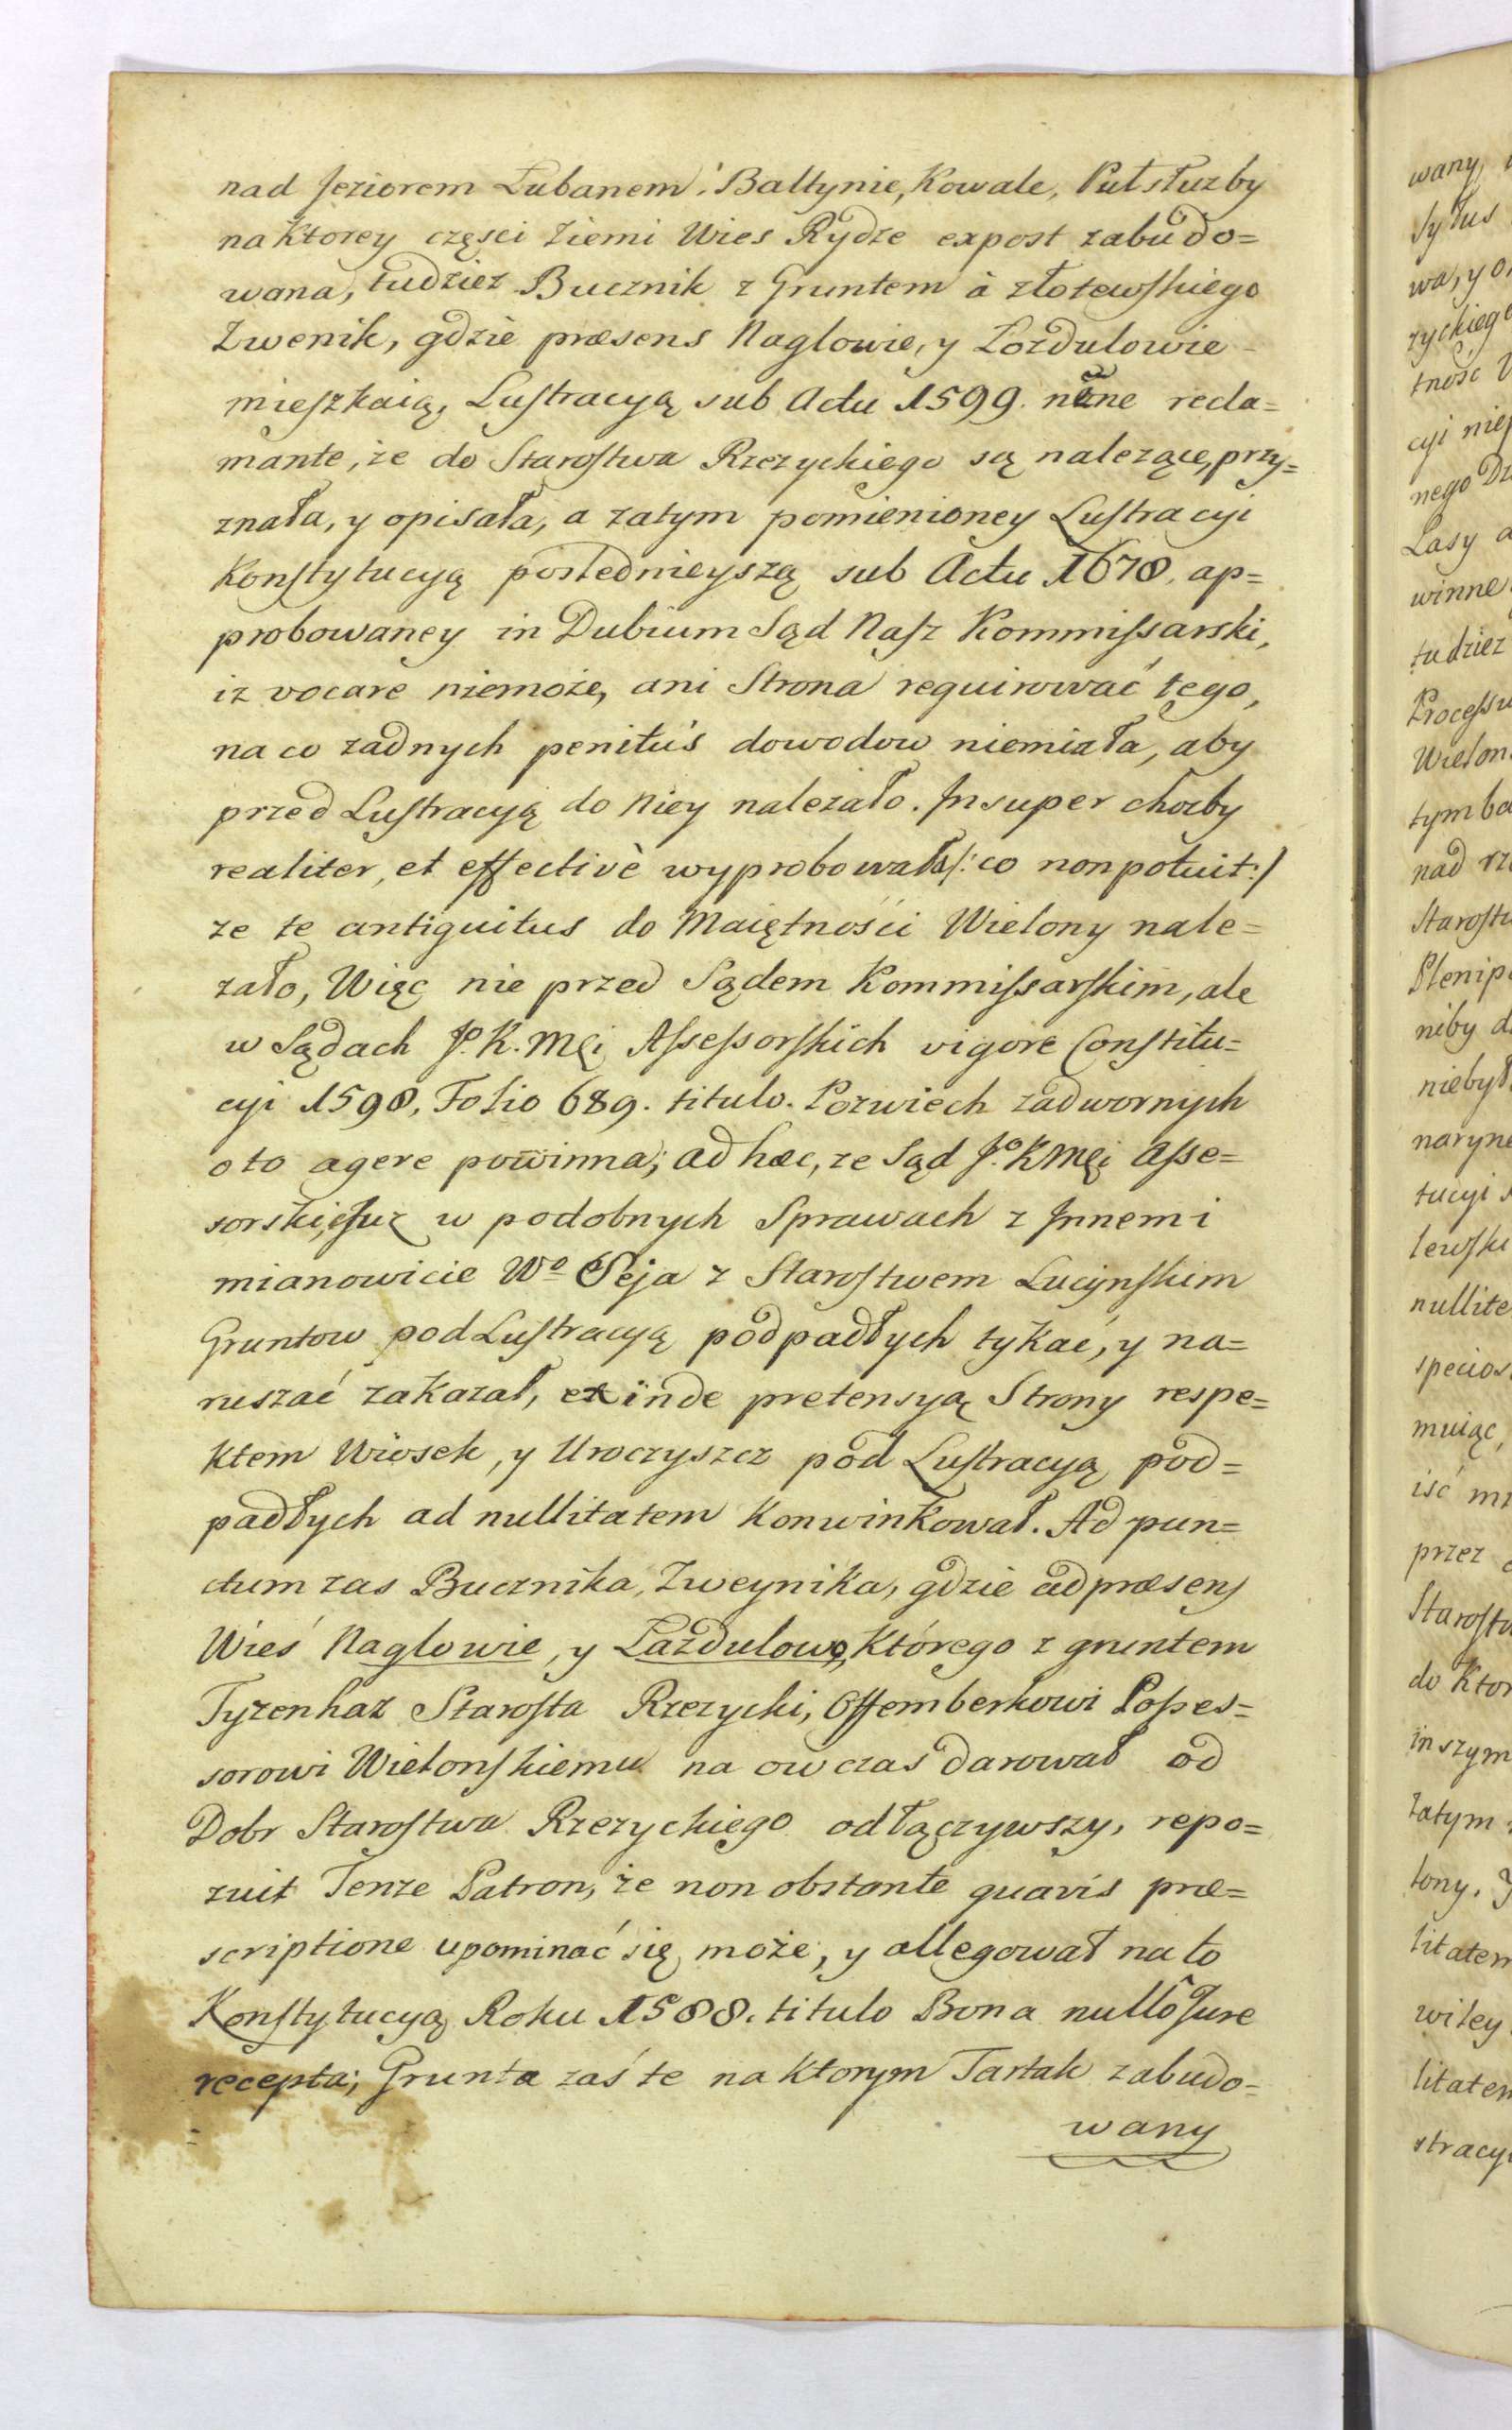 nad Jeziorem Lubanem: Baltynie, Kowale, Puł słuzby
na ktorey częsci Ziemi Wies Rydze expost zabudo=
wana, tudziez Bucznik z Gruntem à złotewskiego
Zwenik, gdzie præsens Naglowie, y Lozdulowie
mieszkaią, Lustracyą sub Actu 1599. nemine recla=
mante, że do Starostwa Rzezyckiego są nalezące, przy=
znała, y opisała, a zatym pomienioney Lustracyi
Konstytucyą poslednieyszą sub Actu 1678. ap=
probowaney in Dubium Sąd Nasz Kommissarski,
iz vocare niemoże, ani Strona requirować tego,
na co zadnych penitus dowodow niemiała, aby
przed Lustracyą do Niey nalezało. Insuper choćby
realiter, et effectivè wyprobowała /: co non potuit :/
ze te antiquitus do Maiętności Wielony nale=
zało, Więc nie przed Sądem Kommissarskim, ale
w Sądach Jo. K. Mći Assessorskich vigore Constitu=
cyi 1598, Folio 689. titulo. Pozwiech zadwornych
o to agere powinna; ad hæc, ze Sąd Jo. K Mći Asse=
sorski, Juz w podobnych Sprawach z Innemi
mianowicie Wo Seja z Starostwem Lucynskim
Gruntow pod Lustracyą podpadłych tykać, y na=
ruszać zakazał, exinde pretensyą Strony respe=
ktem Wiosek, y Uroczyszcz pod Lustracyą pod=
padłych ad nullitatem konwinkował. Ad pun=
ctum zas Bucznika, Zweynika, gdzie ad præsens
Wieś Naglowie, y Lazdulowo, którego z gruntem
Tyzenhaz Starosta Rzezycki, Offemberkowi Posses=
sorowi Wielonskiemu na ow czas darował od
Dobr Starostwa Rzezyckiego odłączywszy, repo=
zuit Tenze Patron, że non obstante quavis præ=
scriptione upominać się może, y allegował na to
Konstytucyą Roku 1588. titulo Bona nullô Jure
recepta; Grunta zaś te na ktorym Tartak zabudo=
wany